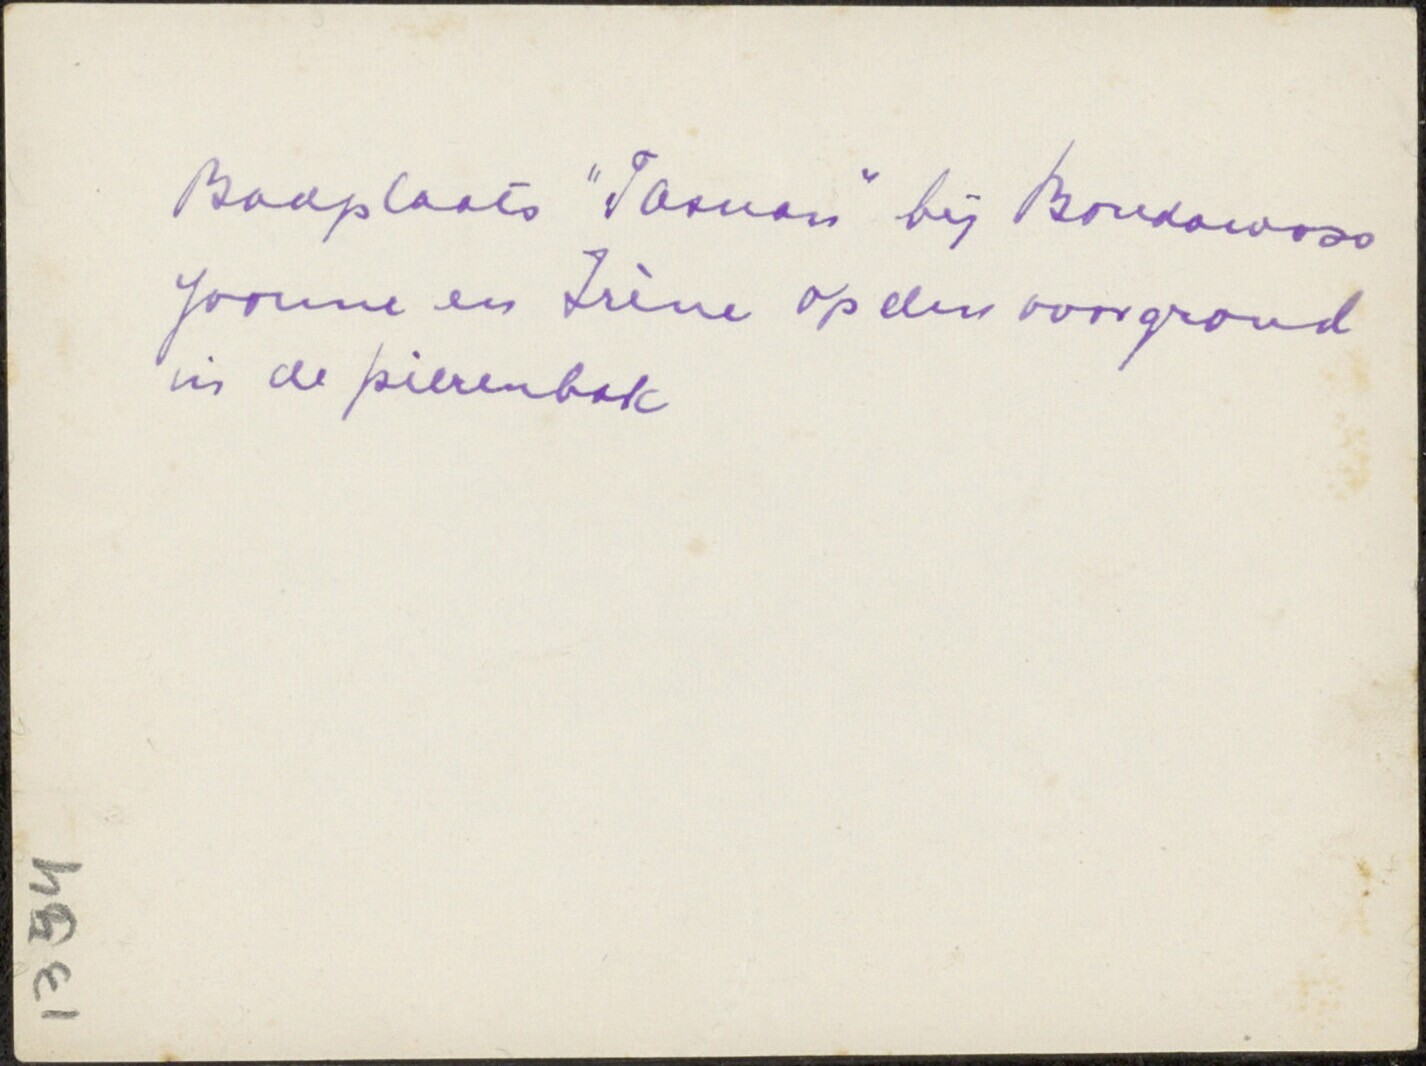 Badplaats "Tasnan" bij Bondowoso
Yvonne en Irène op den voorgrond
in de pierenbak
1394